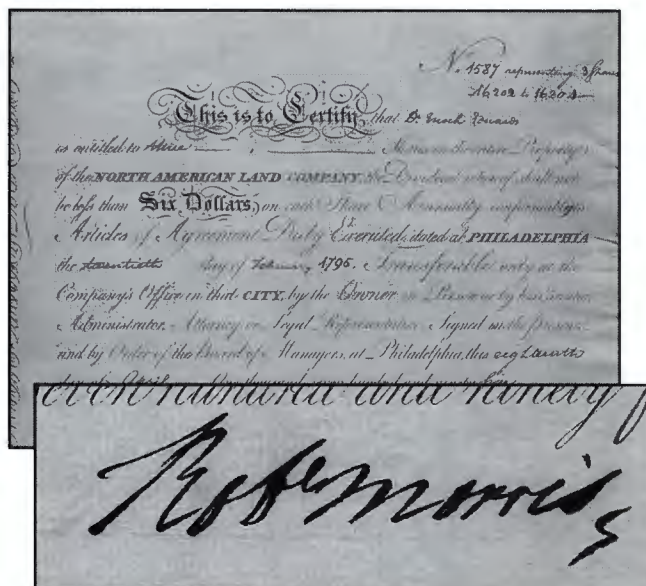 No. 1587 representing 3 Shares
16202 to 16204
This is to Certify, that Dr. Enoch Edwards
is entitled to three Shares in the entire Property
of the NORTH AMERICAN LAND COMPANY, the Dividend whereof shall not
be less than Six Dollars, on each Share Annually conformably to
Articles of Agreement Duly Executed; dated at PHILADELPHIA
the twentieth day of February 1795. Transferable only at the
Company's Office in that CITY, by the Owner in Person or by his Executor
Administrator, Attorney or Legal Representative Signed in the presence
and by Order of the Board of Managers, at Philadelphia, this eighteenth
day of April One thousand seven hundred and ninety five
even hundred and ninety f
Robt Morris